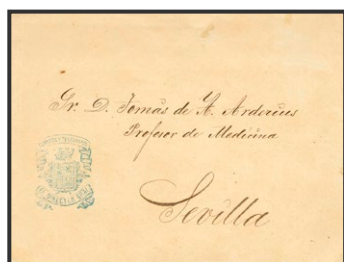 Sr. D. Tomás de A. Arderius
Profesor de Medicina
Sevilla